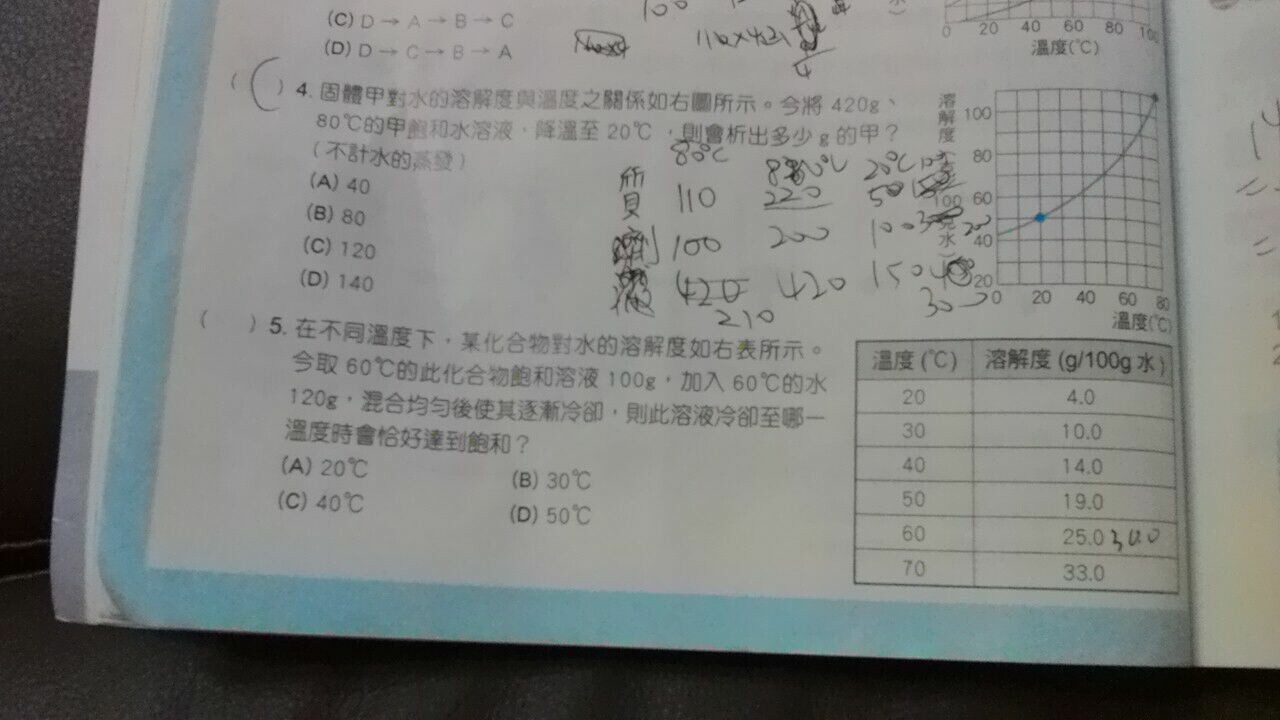 (C) D → A → B → C
(D) D → C → B → A
0 20 40 60 80 100
溫度(℃)
110×421
4
( C ) 4. 固體甲對水的溶解度與溫度之關係如右圖所示。今將 420g、
80℃的甲飽和水溶液,降溫至 20℃,則會析出多少 g 的甲?
(不計水的蒸發)
(A) 40
(B) 80
(C) 120
(D) 140
80℃ 20℃
質 110 220 50
劑 100 200 100
420 420 150
210 300
溶解度
100
80
60
40
20
0 20 40 60 80
溫度(℃)
( ) 5. 在不同溫度下,某化合物對水的溶解度如右表所示。
今取 60℃的此化合物飽和溶液 100g,加入 60℃的水
120g,混合均勻後使其逐漸冷卻,則此溶液冷卻至哪一
溫度時會恰好達到飽和?
(A) 20℃ (B) 30℃
(C) 40℃ (D) 50℃
溫度 (℃) 溶解度 (g/100g 水)
20 4.0
30 10.0
40 14.0
50 19.0
60 25.0
70 33.0